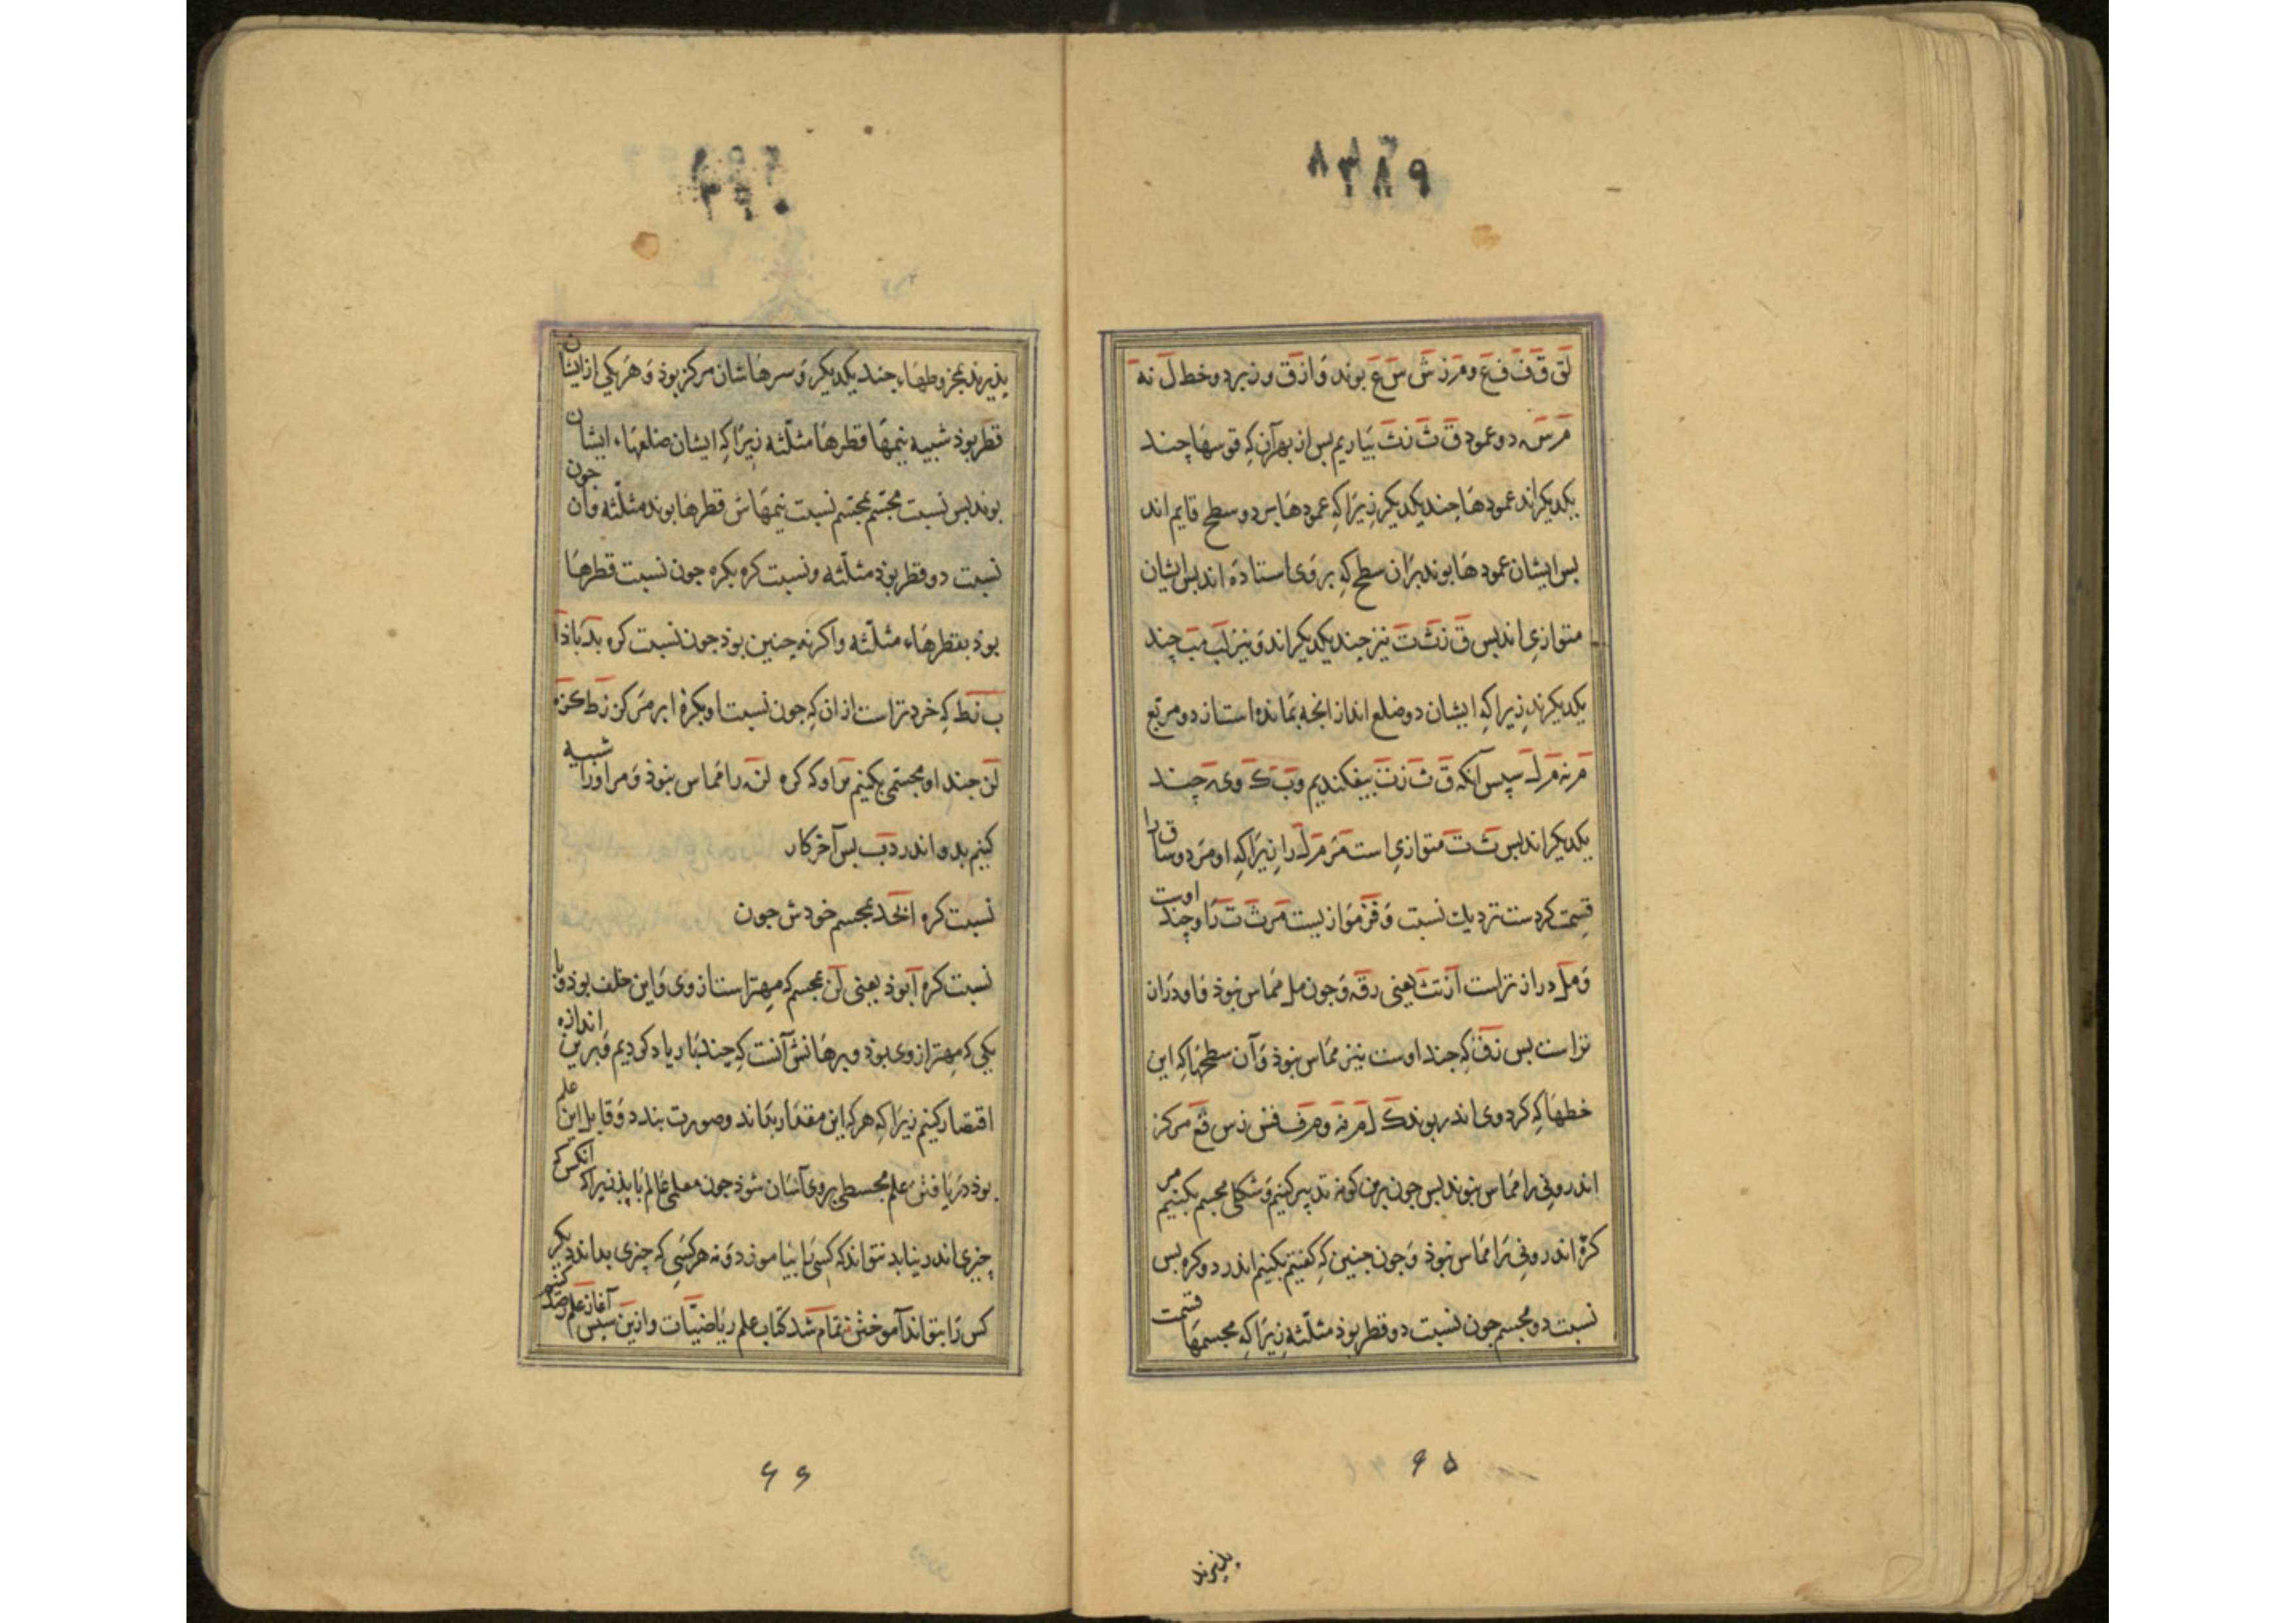 ۳۸۹
لَق قَفَ فَعَ و مَرَ زشَ سَعَ بوند وَ از قَ و ز بر دو خط لَ نه
مَرسَه دو عمود قَ ثَ زثَ بیاریم بس از بهر آن کِه قوسها چند
یکدیکراند عمودها چند یکدیکر زیرا کِه عمودها بر دو سطح قایم اند
بس ایشان عمودها بوند بران سطح کِه بر وی استاده اند بس ایشان
متوازی اند بس قَ زثَ تَ نیز چند یکدیکراند وَ نیز لَبَ مَبَ چند
یکدیکرند زیرا کِه ایشان دو ضلع اند از انچه بمانده است از دو مربّع
مَرنه مَرلَ سپس آنکه قَ ثَ زتَ بیفکندیم وبَ کَ وی چند
یکدیکراند بس ثَ تَ متوازی است مَر مَرلَ را زیرا کِه او مر دو ساق را
قسمت کردست بر یک نسبت وَ قَز موازیست مر ثَ تَ را و چند اوست
وَ مَلَ دراز تر است از تثَ یعنی رقَه وَ چون مل مماس نبوذ فاو دران
تر است بس زقَ کِه چند اوست نیز مماس نبوذ وَ آن سطحها کِه این
خطها کِه کرد وی اندر بوند کَ لَ مَر نه و مَرفَ فس زس فَع مرکز
اندرونی را مماس نبوند بس چون برین کونه تدبیر کنیم وَ شکلی مجسم بکنیم مر
کرهٔ اندرونی را مماس نبوذ وَ چون چنین کِه کفتیم بکنیم اندر دو کره بس
نسبت دو مجسم چون نسبت دو قطر بوذ مثلّثه زیرا کِه مجسمها قسمت
۶۵
پذیرند
پذیرند بمخروطهاء چند یکدیکر وَ سرهاشان مرکز بوذ وَ هر یکی از ایشان
قطر بوذ شبیه نیمها قطرها مثلّثه زیرا کِه ایشان ضلعهاء ایشان
بوند بس نسبت مجسّم بمجسّم نسبت نیمهاش قطرها بوند مثلّثه وان چون
نسبت دو قطر بوذ مثلّثه و نسبت کره بکره چون نسبت قطرها
بوذ بقطرهاء مثلّثه و اکر نه چنین بوذ چون نسبت کره بدَ باذا
ب نَط کِه خردتر است از ان کِه چون نسبت او بکرهٔ ا بر مرکز نَ طکَزه
لَن چند او مجسّمی بکنیم بر او که کره لنَه را مماس نبوذ وَ مر او را شبیه
کنیم بدو اندر دبَ بس آخر کار
نسبت کره الخَد بمجسم خودش چون
نسبت کره آبوذ یعنی لَن بمجسم که مهتر است از وی وَ این خلف بوذ وَ با
یکی که مهتر از وی بوذ و برهانش آنست کِه چند بار یاد کردیم وَ برین اندازه
اقتصار کنیم زیرا که هر که این مقدار بداند و صورت بندد وَ قابل این علم
بوذ دریافتن علم مجسطی بر وی آسان شوذ چون معلمی عالم یابذ زیرا که انکس که
چیزی اندر نیابد نتواند که کسی را بیاموزد وَ نه هر کسی که چیزی بداند دیکر
کس را بتواند آموختن تمام شد کتاب علم ریاضیّات و ازین سپس آغاز علم رصد کنیم
۶۶